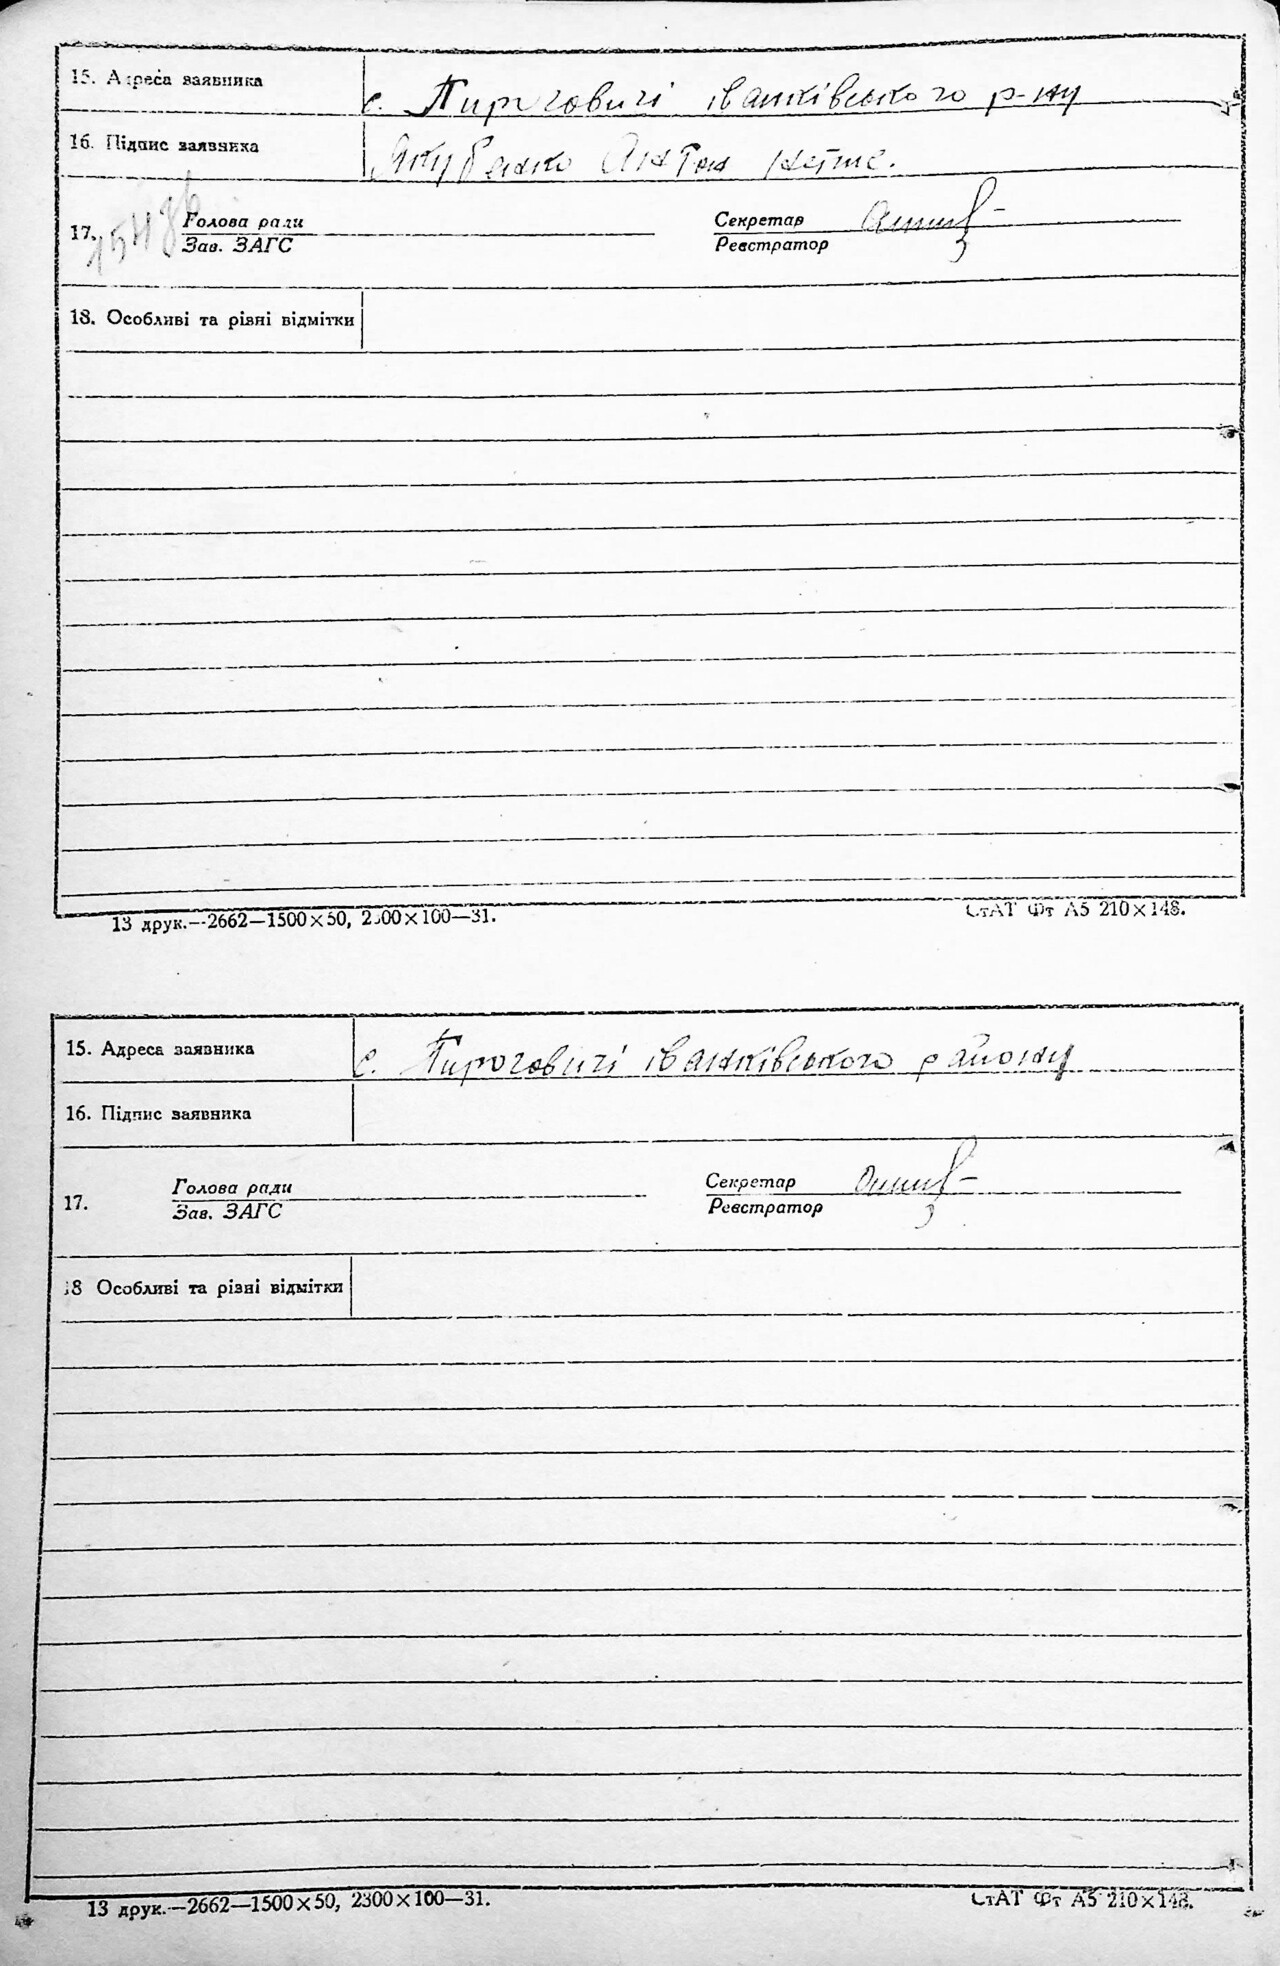 15. Адреса заявника с. Пироговичі іванківського р-ну
16. Підпис заявника Якубенко Антон
17. Голова ради Секретар
Зав. ЗАГС Реєстратор
18. Особливі та різні відмітки
13 друк.—2662—1500×50, 2300×100—31. СтАТ Фт А5 210×148.
15. Адреса заявника с. Пироговичі іванківського району
16. Підпис заявника
17. Голова ради Секретар
Зав. ЗАГС Реєстратор
18 Особливі та різні відмітки
13 друк.—2662—1500×50, 2300×100—31. СтАТ Фт А5 210×148.